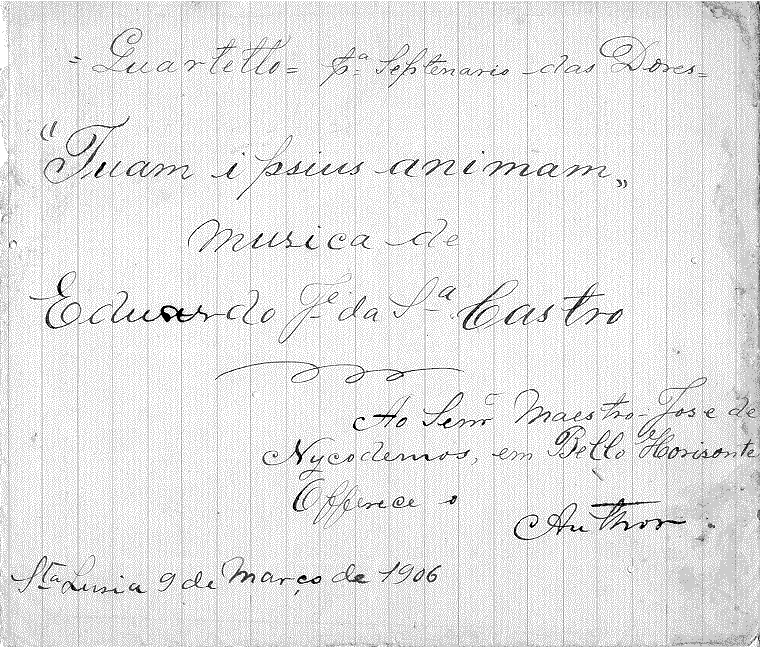 = Quartetto = pª Septenario das Dores =
"Tuam ipsius animam„
Musica de
Eduardo Je da Sª Castro
Ao Senr Maestro José de
Nycodemos, em Bello Horisonte
Offerece o
Author
Sta Lusia 9 de Março de 1906